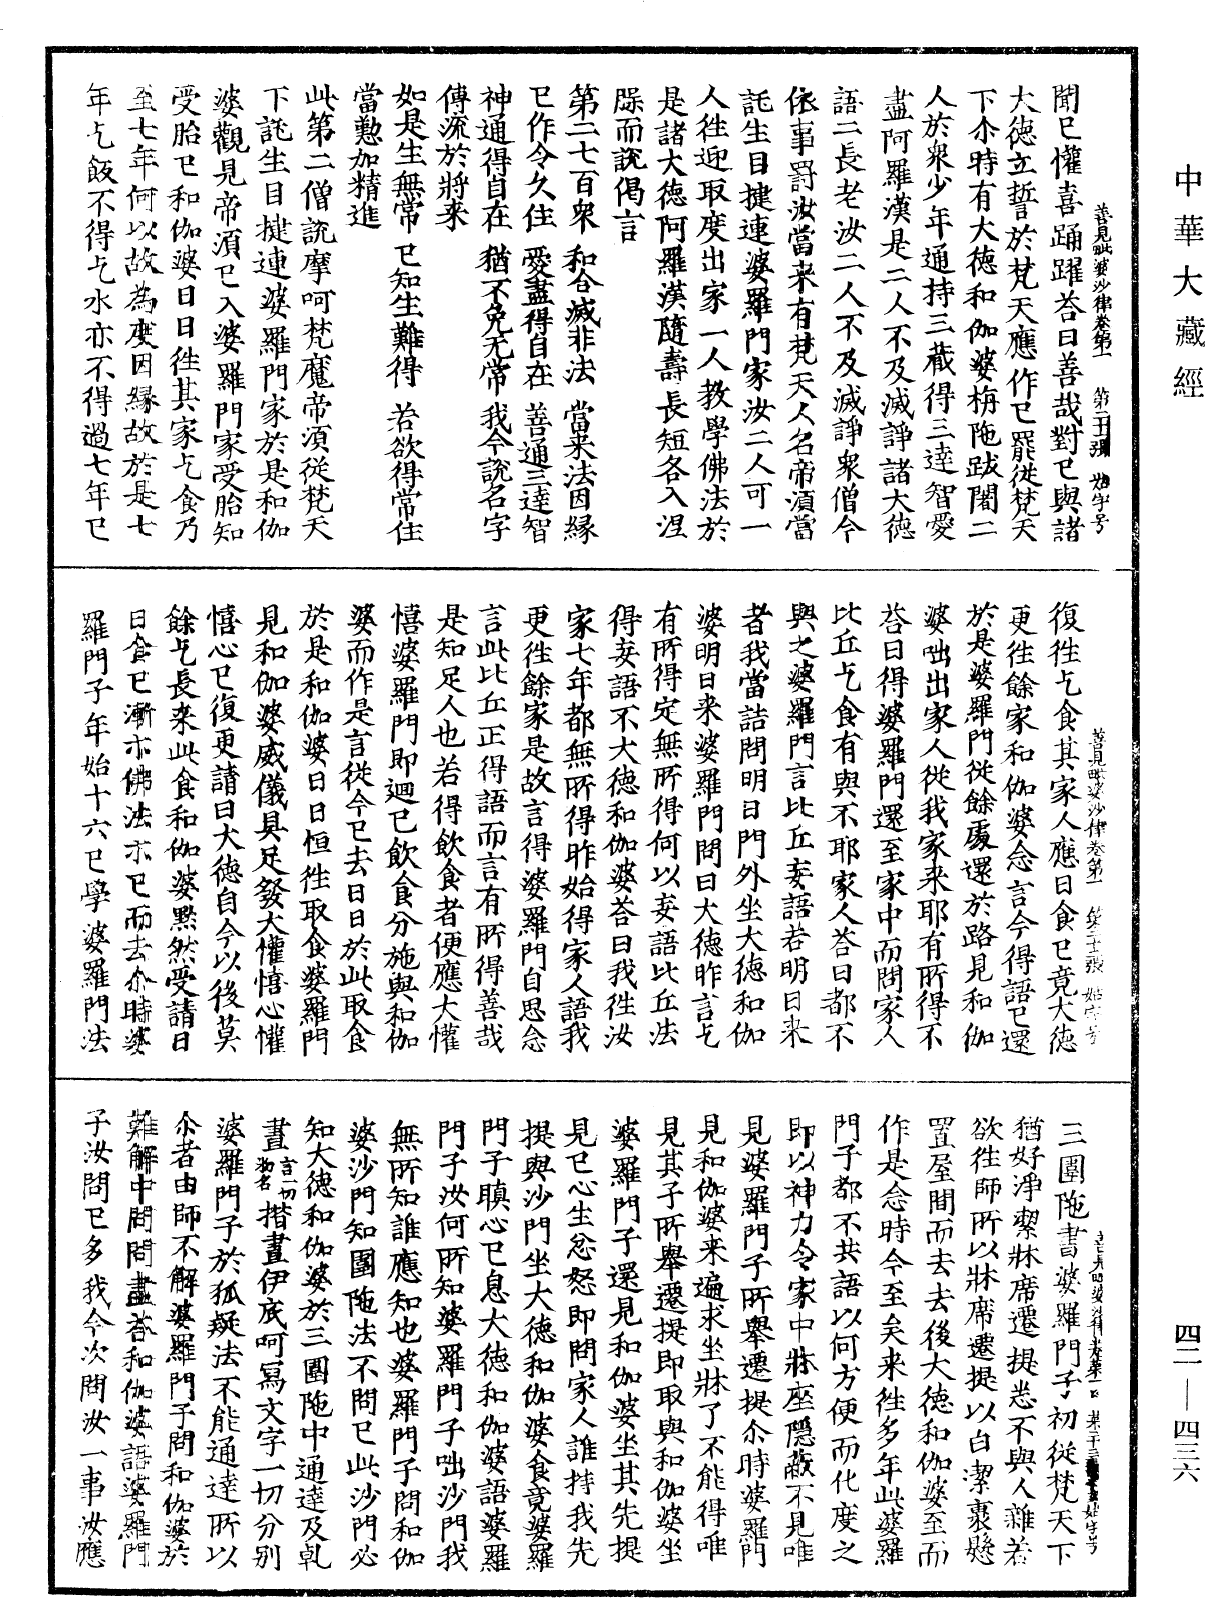 中華大藏經
善見毗婆沙律卷第一 第二十張 姑字号
聞已懽喜踊躍荅曰善哉對已與諸
大德立誓於梵天應作已罷從梵天
下尒時有大德和伽婆栴陁跋闍二
人於衆少年通持三藏得三達智愛
盡阿羅漢是二人不及滅諍諸大德
語二長老汝二人不及滅諍衆僧今
依事罰汝當来有梵天人名帝湏當
託生目揵連婆羅門家汝二人可一
人徃迎取度出家一人教學佛法於
是諸大德阿羅漢隨壽長短各入涅
槃而說偈言
第二七百衆 和合滅非法 當来法因緣
已作令久住 愛盡得自在 善通三達智
神通得自在 猶不免无常 我今說名字
傳流於將来
如是生無常 已知生難得 若欲得常住
當懃加精進
此第二僧說摩呵梵魔帝湏從梵天
下託生目揵連婆羅門家於是和伽
婆觀見帝湏已入婆羅門家受胎知
受胎已和伽婆日日徃其家乞食乃
至七年何以故為度因緣故於是七
年乞飯不得乞水亦不得過七年已
善見毗婆沙律卷第一 第二十張 姑字号
復徃乞食其家人應曰食已竟大德
更徃餘家和伽婆念言今得語已還
於是婆羅門從餘處還於路見和伽
婆咄出家人從我家来耶有所得不
荅曰得婆羅門還至家中而問家人
比丘乞食有與不耶家人荅曰都不
與之婆羅門言比丘妄語若明日来
者我當詰問明日門外坐大德和伽
婆明日来婆羅門問曰大德昨言乞
有所得定無所得何以妄語比丘法
得妄語不大德和伽婆荅曰我徃汝
家七年都無所得昨始得家人語我
更徃餘家是故言得婆羅門自思念
言此比丘正得語而言有所得善哉
是知足人也若得飲食者便應大懽
憘婆羅門即迴已飲食分施與和伽
婆而作是言從今已去日日於此取食
於是和伽婆日日恒徃取食婆羅門
見和伽婆威儀具足發大懽憘心懽
憘心已復更請曰大德自今以後莫
餘乞長来此食和伽婆黙然受請日
日食已漸示佛法示已而去尒時婆
羅門子年始十六已學婆羅門法
善見毗婆沙律卷第一 姑字号
三圍陁書婆羅門子初從梵天下
猶好淨潔牀席遷提悉不與人雜若
欲徃師所以牀席遷提以白潔裹懸
置屋間而去去後大德和伽婆至而
作是念時今至矣来徃多年此婆羅
門子都不共語以何方便而化度之
即以神力令家中牀座隱蔽不見唯
見婆羅門子所舉遷提尒時婆羅門
見和伽婆来遍求坐牀了不能得唯
見其子所舉遷提即取與和伽婆坐
婆羅門子還見和伽婆坐其先提
見已心生忿怒即問家人誰持我先
提與沙門坐大德和伽婆食竟婆羅
門子瞋心已息大德和伽婆語婆羅
門子汝何所知婆羅門子咄沙門我
無所知誰應知也婆羅門子問和伽
婆沙門知圍陁法不問已此沙門必
知大德和伽婆於三圍陁中通達及乹
晝言一切物名揩晝伊底呵寫文字一切分别
婆羅門子於狐疑法不能通達所以
尒者由師不解婆羅門子問和伽婆於
難解中問問盡荅和伽婆語婆羅門
子汝問已多我今次問汝一事汝應
四二—四三六